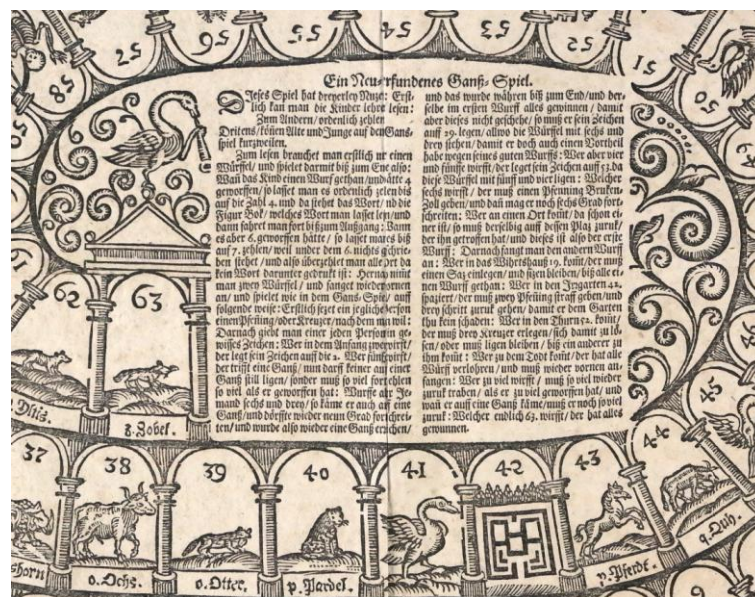 58
57
56
55
54
53
52
51
50
Ein Neu-erfundenes Ganß-Spiel.
Dieses Spiel hat dreyerley Nuze: Erst-
lich kan man die Kinder lehre lesen:
Zum Andern/ ordentlich zehlen
Dritens/ köñen Alte und Junge auf den Gans-
spiel kurzweilen.
Zum lesen brauchet man erstlich nr einen
Würffel/ und spielet darmit biß zum Ene also:
Wañ das Kind einen Wurf gethan/und ätte 4
geworffen/ so lasset man es ordenlich zelen biß
auf die Zahl 4. und da stehet das Wort/ nd die
Figur Bok/ welches Wort man lasset len/ und
dann fahret man fort biß zum Außgang: Vann
es aber 6. geworffen hätte/ so lasset mares biß
auf 7. zehlen/ weil under dem 6. nichts gchrie-
ben stehet/ und also übergehet man alle Ort da
kein Wort darunter gedrukt ist: Hernac nimt
man zwey Würffel/ und fanget wieder vornen
an/ und spielet wie in dem Gans-Spie/ auff
folgende weise: Erstlich sezet ein jegliche person
einen Pfeñing/ oder Kreuzer/ nach dem mn wil:
Darnach giebt man einer jeden Persohn ge-
wisses Zeichen: Wer in dem Anfang zwey wirft/
der legt sein Zeichen auff die 2. Wer fünfwirft/
der trifft eine Ganß/ nun darff keiner auf einer
Ganß still ligen/ sonder muß so viel fort ehlen
so viel als er geworffen hat: Wurffe abr Je-
mand sechs und drey/ so käme er auch auf eine
Ganß/ und dörffte wieder neun Grad fortschrei-
ten/ und wurde also wieder eine Ganß erzichen/
und das wurde währen biß zum End/ und der-
selbe im ersten Wurff alles gewinnen/ damit
aber dieses nicht geschehe/ so muß er sein Zeichen
auff 29. legen/ allwo die Würffel mit sechs und
drey stehen/ damit er doch auch einen Vortheil
habe wegen seines guten Wurffs: Wer aber vier
und fünffe wirfft/ der leget sein Zeichen auff 53. da
diese Würffel mit fünff und vier ligen: Welcher
sechs wirfft/ der muß einen Pfenning Bruken-
Zoll geben/ und dañ mag er noch sechs Grad fort
schreiten: Wer an einen Ort koṁt/ da schon ei-
ner ist/ so muß derselbig auff dessen Plaz zuruk/
der ihn getroffen hat/ und dieses ist also der erste
Wurff: Darnach fangt man den andern Wurff
an: Wer in das Wihrtshauß 19. koṁt/ der muß
einen Saz einlegen/ und sizen bleiben/ biß alle ei-
nen Wurff gethan: Wer in den Irrgarten 42.
spaziert/ der muß zwey Pfeñing straff geben/ und
drey schritt zuruk gehen/ damit er dem Garten
thu kein schaden: Wer in den Thurn 52. koṁt/
der muß drey Kreuzer erlegen/ sich damit zu lö-
sen/ oder muß ligen bleiben/ biß ein anderer zu
ihm koṁt: Wer zu dem Todt koṁt/ der hat alle
Würff verlohren/ und muß wieder vornen an-
fangen: Wer zu viel wirfft/ muß so viel wieder
zuruk traben/ als er zu viel geworffen hat/ und
wañ er auff eine Ganß käme/ muß er noch so viel
zuruk: Welcher endlich 63. wirfft/ der hat alles
gewinnen.
62
63
z. Zobel.
45
44
37
38
39
40
41
42
43
o. Ochs.
o. Otter.
p. Pardel.
p. Pferdt.
9
8